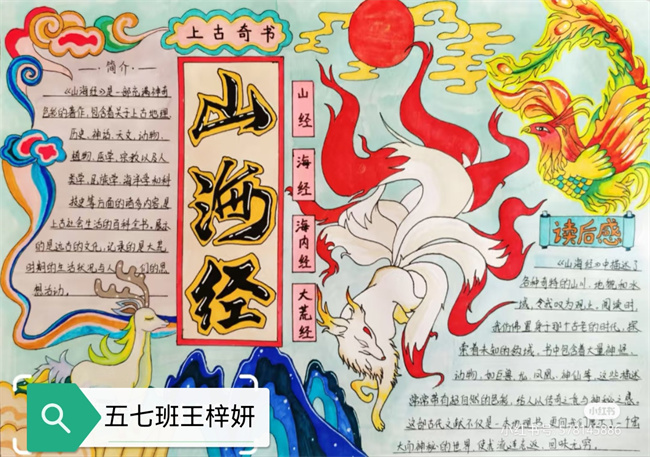 上古奇书
简介
《山海经》是一部充满神奇
色彩的著作,包含着关于上古地理
历史、神话、天文、动物、
植物、医学、宗教以及人
类学、民族学、海洋学和科
技史等方面的诸多内容,是
上古社会生活的百科全书。展示
的是远古的文化,记录的是大荒
时期的生活状况与人们的思
想活动。
山海经
山经
海经
海内经
大荒经
读后感
《山海经》中描述了
各种奇特的山川、地貌和水
域,令我叹为观止。阅读时
我仿佛置身于那个古老的时代,探
索着未知的领域。书中包含着大量神怪、
动物,如巨兽、凤凰、神仙等,这些描述
常常带有超自然的色彩,给人以传奇之意与神秘之感。
这部古代文献不仅是一本地理书,更向我们展示了一个宏
大而神秘的世界,使我流连忘返,回味无穷。
小红书
五七班王梓妍